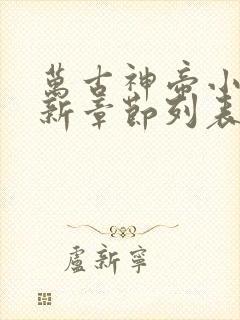 萬古神帝小
新章節列表
盧新寧